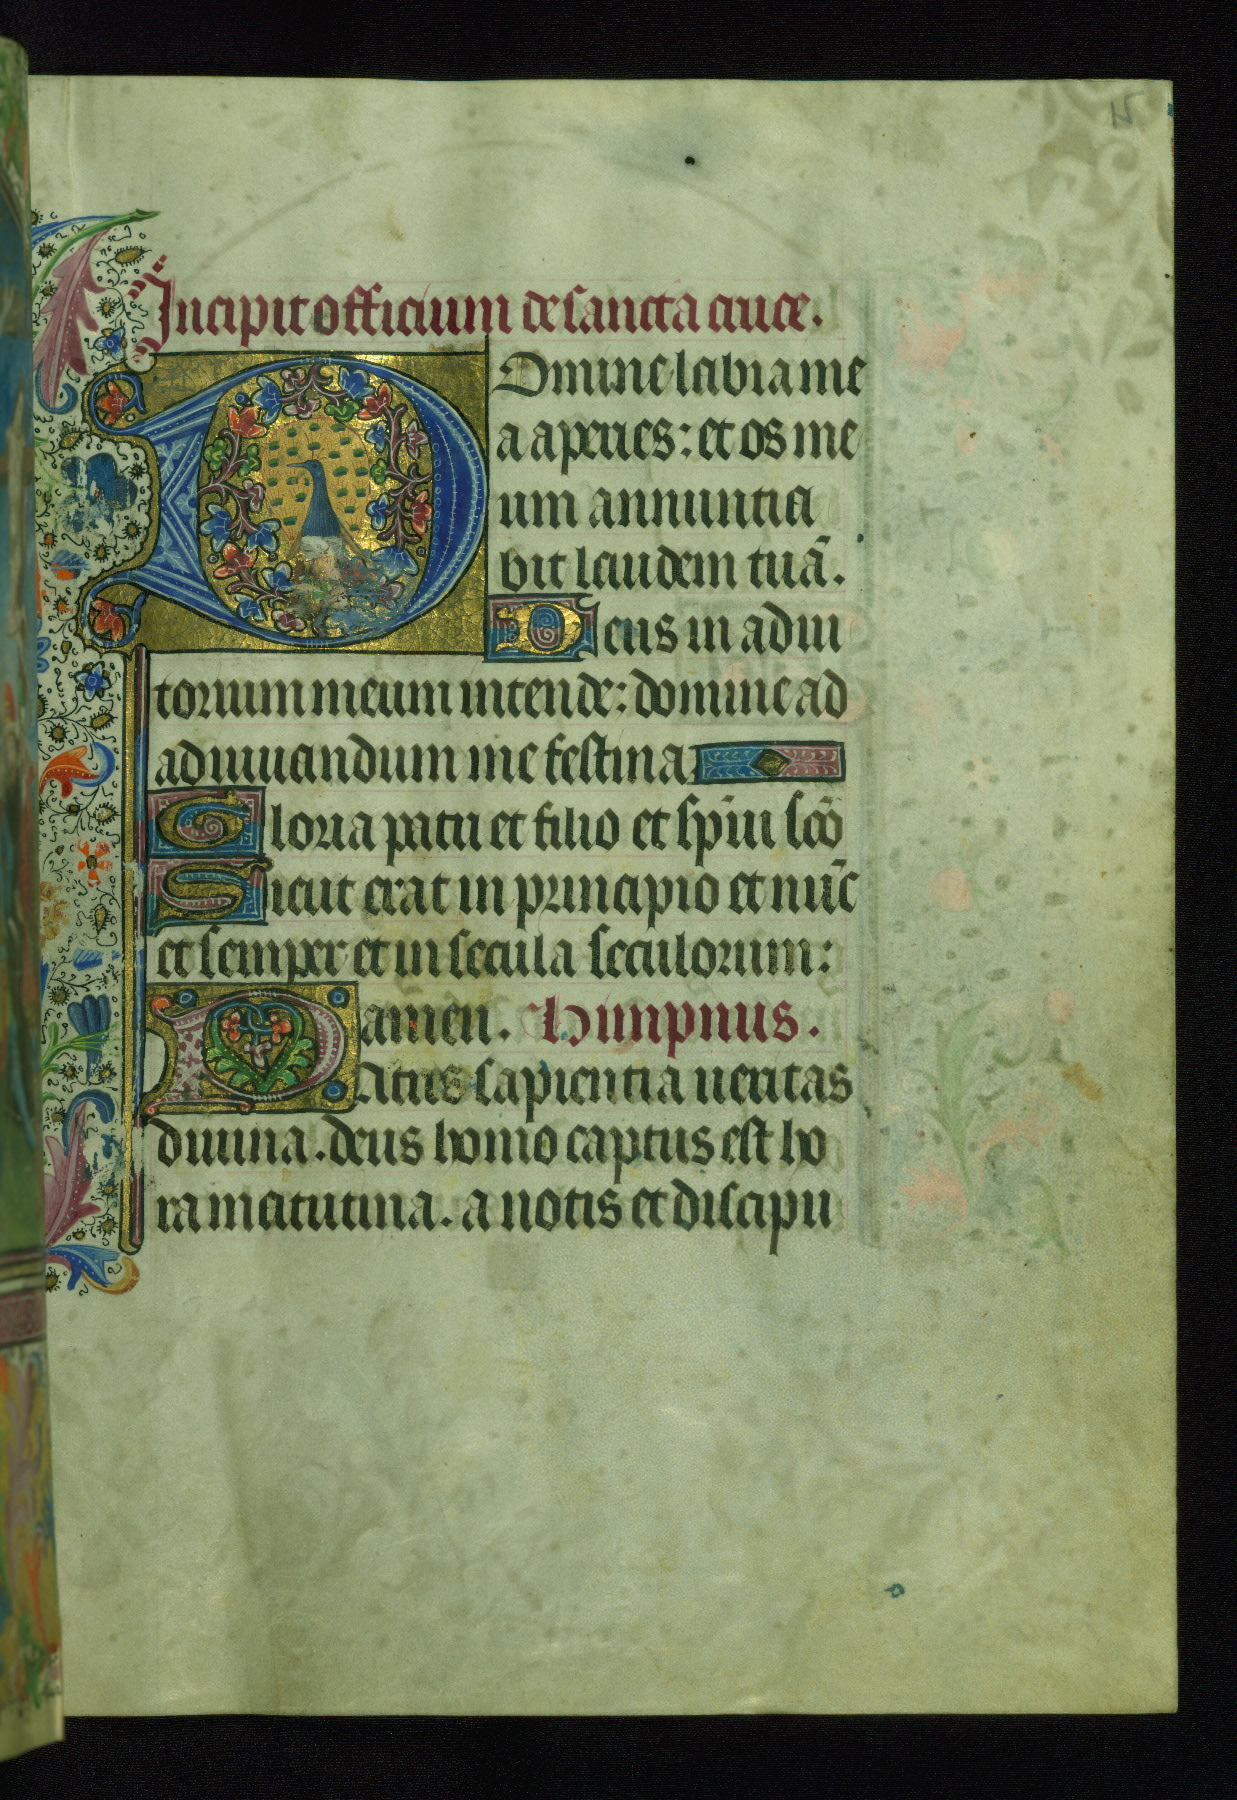 15
Incipit officium de sancta cruce.
Domine labia me
a aperies: et os me
um annuntia
bit laudem tuā.
Deus in adiu
torium meum intende: domine ad
adiuuandum me festina
Gloria patri et filio et spūi scō
Sicut erat in principio et nūc
et semper et in secula seculorum:
amen. Himpnus.
Patris sapientia ueritas
diuina. deus homo captus est ho
ra matutina. a notis et discipu